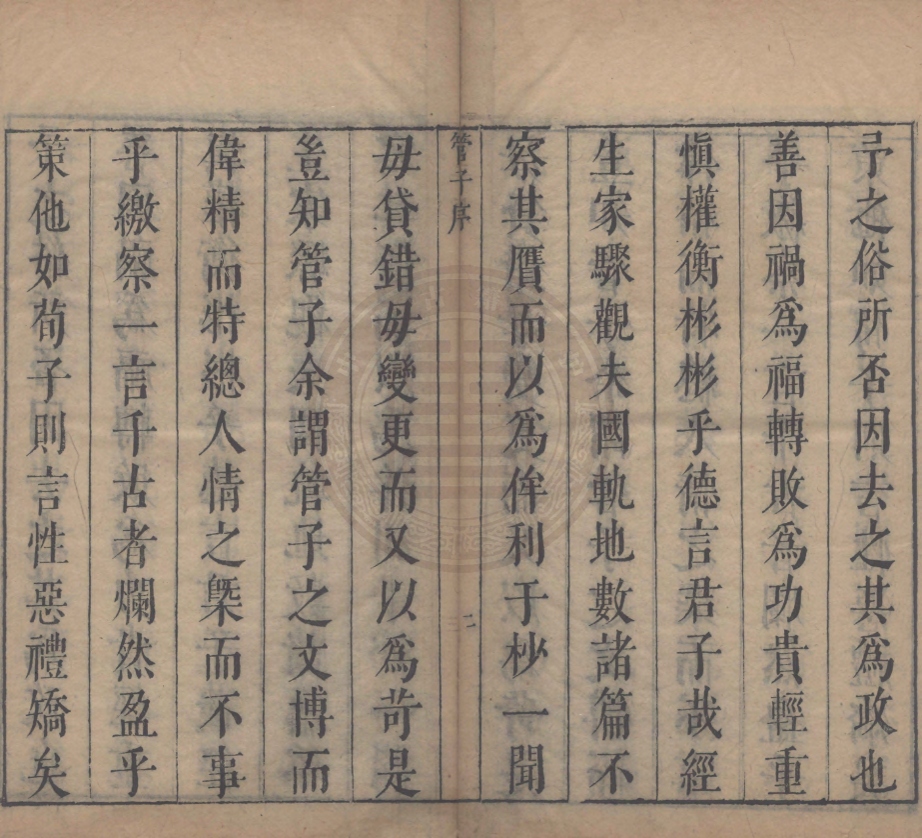 予之俗所否因去之其為政也
善因禍為福轉敗為功貴輕重
慎權衡彬彬乎德言君子哉經
生家驟觀夫國軌地數諸篇不
察其贋而以為侔利于杪一聞
管子序
二
毋貸錯毋變更而又以為苛是
豈知管子余謂管子之文博而
偉精而特總人情之槩而不事
乎繳察一言千古者爛然盈乎
策他如荀子則言性惡禮矯矣